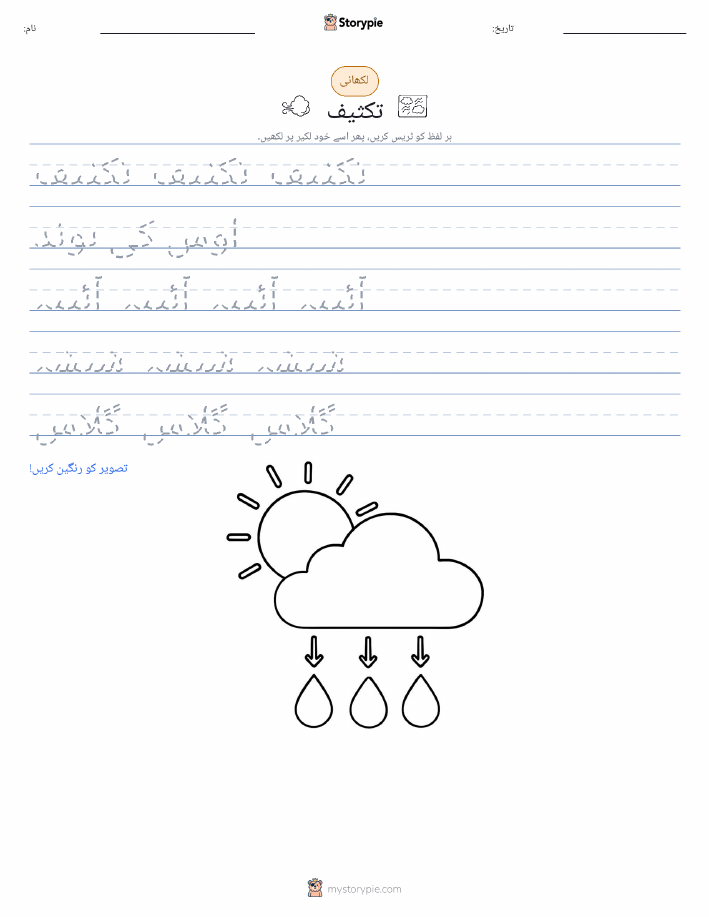 نام:
Storypie
تاریخ:
لکھائی
تکثیف
ہر لفظ کو ٹریس کریں، پھر اسے خود لکیر پر لکھیں۔
تکثیف تکثیف تکثیف
اوس کی بوند
آئینہ آئینہ آئینہ آئینہ
گلاس گلاس گلاس
تصویر کو رنگین کریں!
mystorypie.com